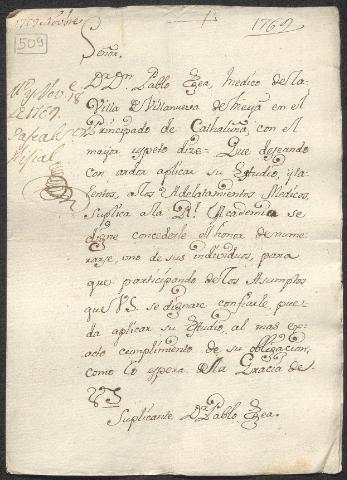 1769 Novbre
1769
509
Señor.
Dr. Dn. Pablo Ezea, Medico de la
Villa de Villanueva de Meyà en el
Principado de Cathaluña, con el
mayor respeto dize = Que deseando
con ardor aplicar su Estudio, y ta-
lentos, a los Adelantamientos Medicos,
Suplica a la Rl. Academia se
digne concederle el honor de nume-
rarse, uno de sus individuos, para
que participando de los Asumptos
que VS. se dignare confiarle, pue-
da aplicar su Estudio, al mas ex-
acto cumplimiento de su obligacion,
como lo espera de la Gracia de
VS
Suplicante Dr. Pablo Ezea.